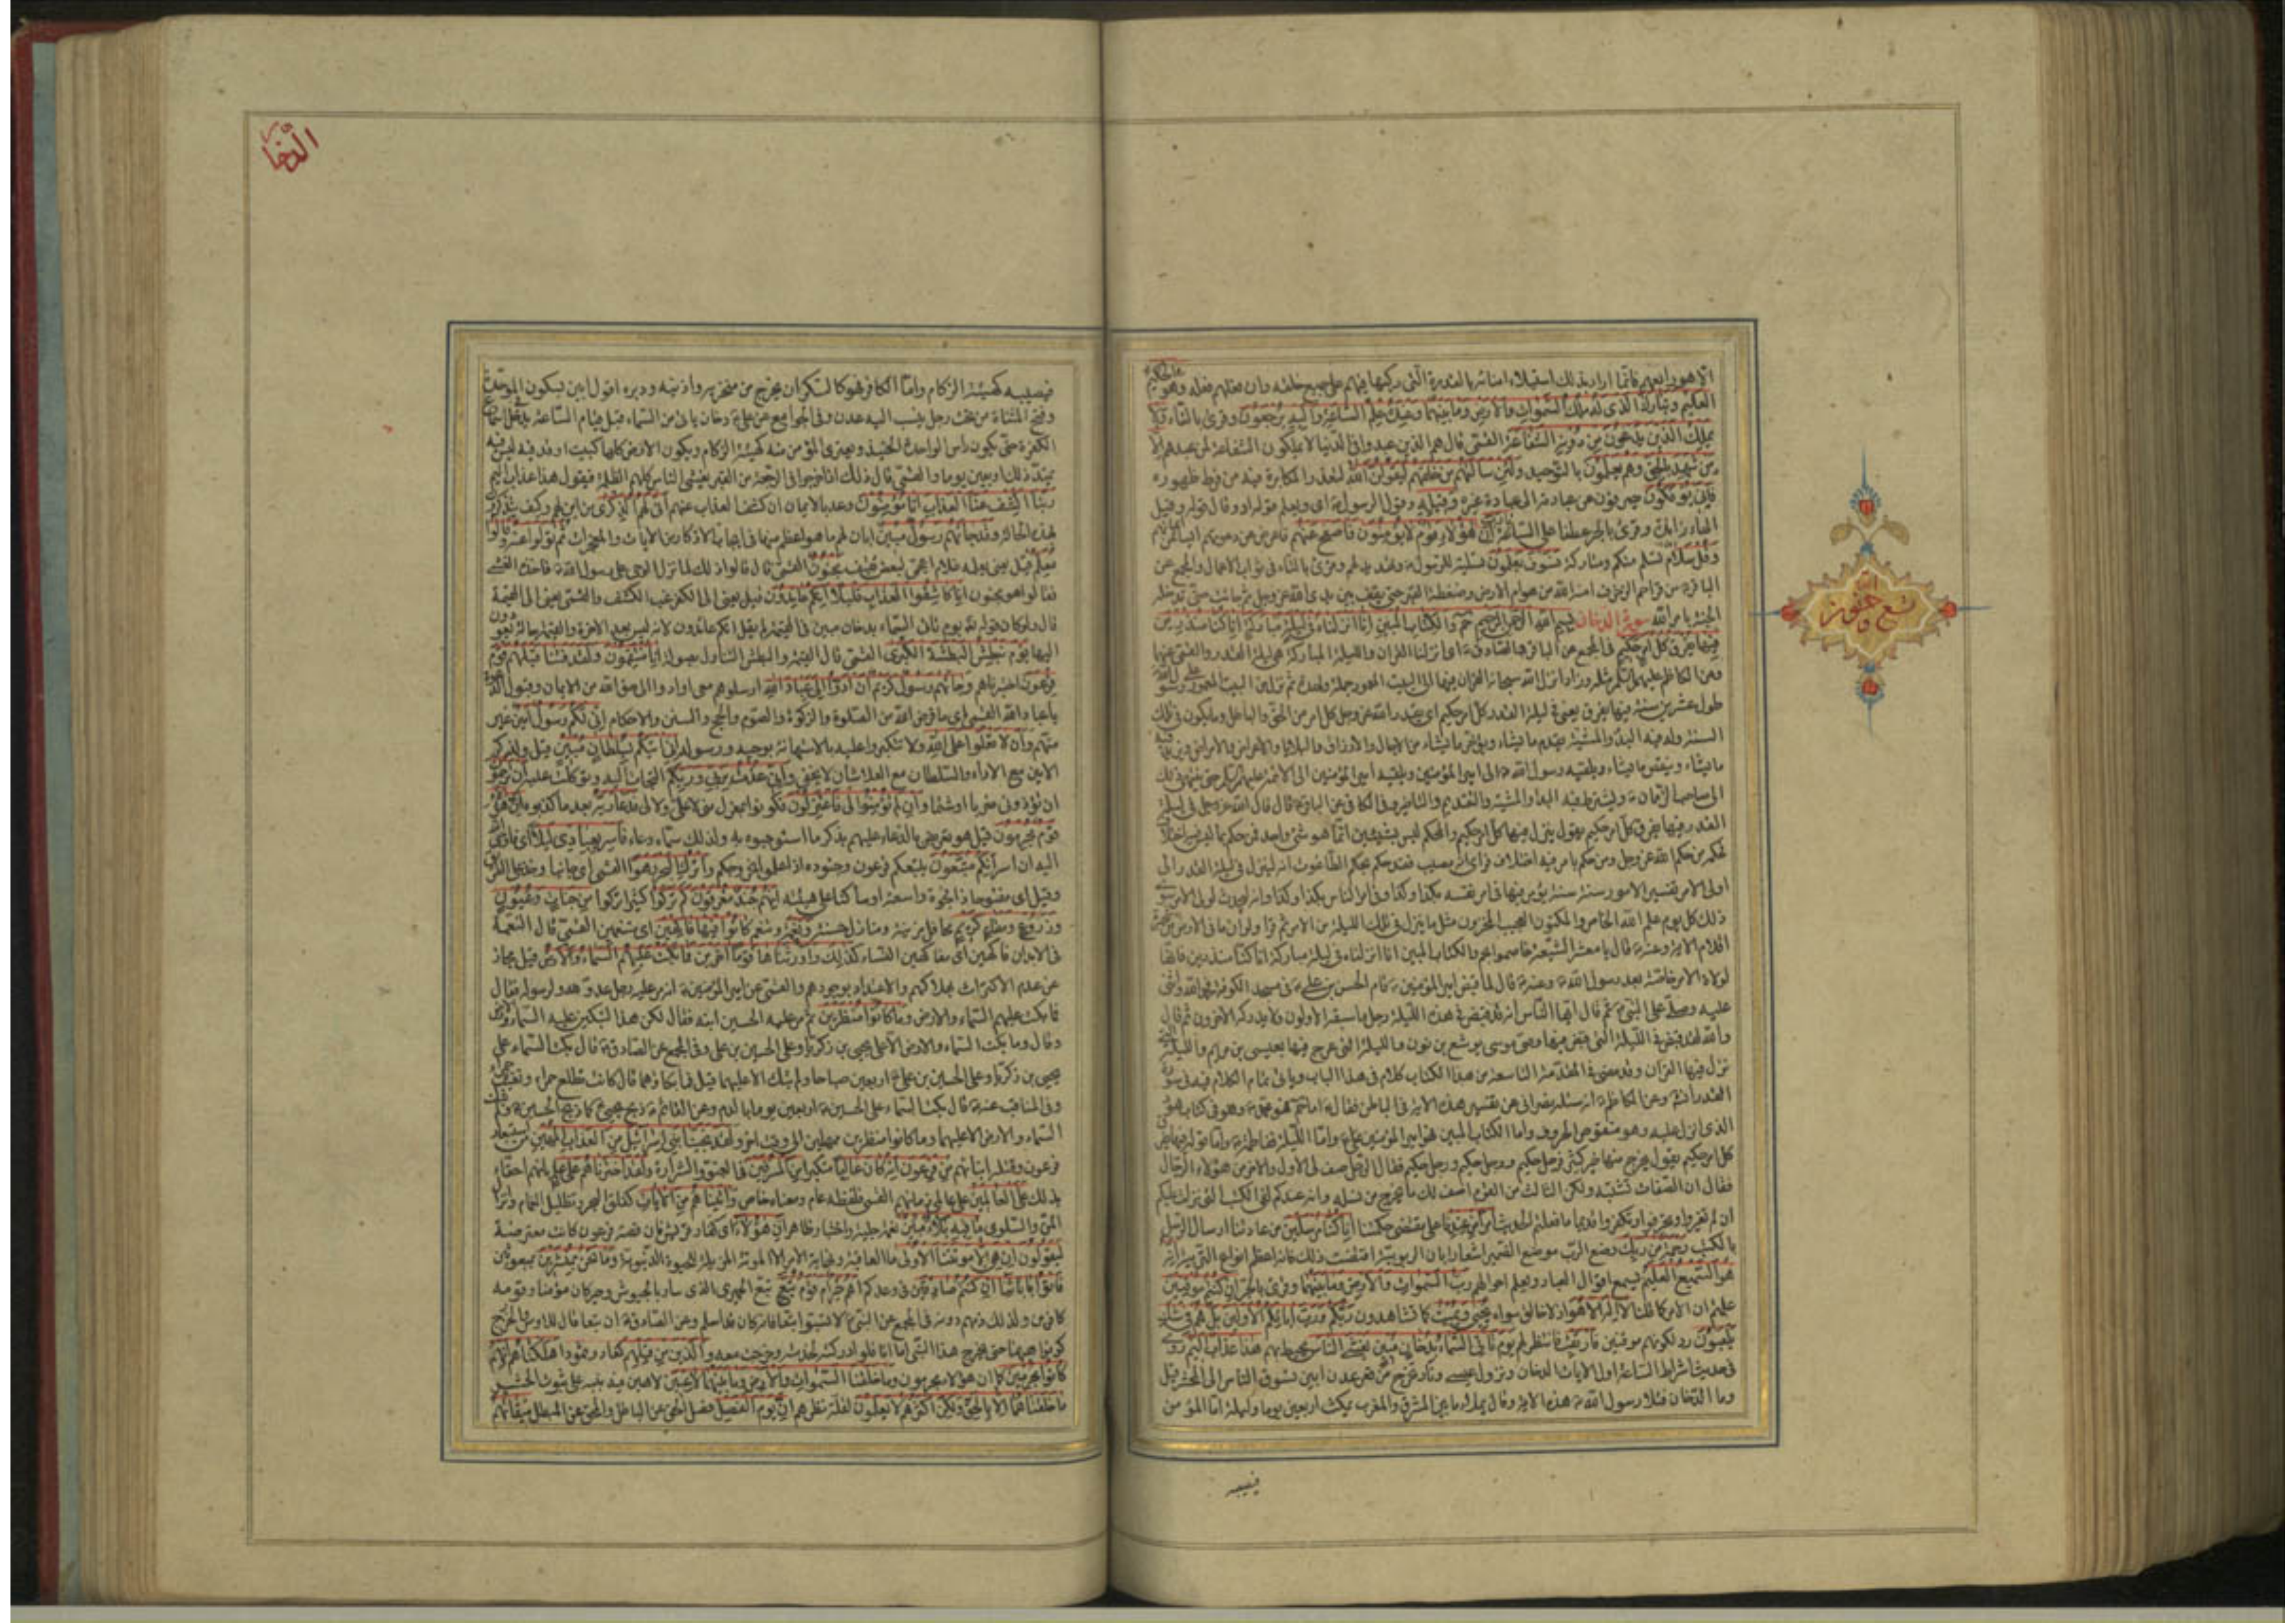 الا هو رابعهم فانما اراد بذلك استيلاء امنائه بالقدرة التي ركبها فيهم على جميع خلقه وان فعلهم فعله وهو الحكيم
العليم وتبارك الذي له ملك السموات والارض وما بينهما وعنده علم الساعة واليه ترجعون وقرئ بالتاء ولا
يملك الذين يدعون من دونه الشفاعة القمي قال هم الذين عبدوا في الدنيا لا يملكون الشفاعة لمن عبدهم الا
من شهد بالحق وهم يعلمون بالتوحيد ولئن سالتهم من خلقهم ليقولن الله لتعذر المكابرة فيه من فرط ظهوره
فانى يؤفكون يصرفون عن عبادته الى عبادة غيره وقيله وقول الرسول
ان هؤلاء قوم لا يؤمنون فاصفح عنهم فاعرض عن دعوتهم
وقل سلام تسلم منكم ومتاركة فسوف يعلمون تسلية للرسول وتهديد لهم وقرئ بالتاء في ثواب الاعمال والمجمع عن
الباقر من قرا حم الزخرف امنه الله من هوام الارض وضغطة القبر حتى يقف بين يدي الله عز وجل ثم جاءت حتى تدخله
الجنة بامر الله سورة الدخان بسم الله الرحمن الرحيم حم والكتاب المبين انا انزلناه في ليلة مباركة انا كنا منذرين
فيها يفرق كل امر حكيم في المجمع عن الباقر والصادق اي انزلنا القران والليلة المباركة هي ليلة القدر والقمي عنهما
وعن الكاظم عليهم السلام مثله وزاد انزل الله سبحانه القران فيها الى البيت المعمور جملة واحدة ثم نزل من البيت المعمور على رسول الله
طول عشرين سنة فيها يفرق يعني في ليلة القدر كل امر حكيم اي يقدر الله عز وجل كل امر من الحق والباطل وما يكون في تلك
السنة وله فيه البداء والمشية يقدم ما يشاء ويؤخر ما يشاء من الاجال والارزاق والبلايا والاعراض والامراض ويزيد فيه
ما يشاء وينقص ما يشاء ويلقيه رسول الله الى امير المؤمنين ويلقيه امير المؤمنين الى الائمة عليهم السلام حتى ينتهي ذلك
الى صاحب الزمان ويشترط فيه البداء والمشية والتقديم والتاخير وفي الكافي عن الباقر قال قال الله عز وجل في ليلة
القدر فيها يفرق كل امر حكيم يقول ينزل فيها كل امر حكيم والمحكم ليس بشيئين انما هو شئ واحد فمن حكم بما ليس فيه اختلاف
فحكمه من حكم الله عز وجل ومن حكم بامر فيه اختلاف فراى انه مصيب فقد حكم بحكم الطاغوت انه لينزل في ليلة القدر الى
اولى الامر تفسير الامور سنة سنة يؤمر فيها في امر نفسه بكذا وكذا وفي امر الناس بكذا وكذا وانه ليحدث لولي الامر سوى
ذلك كل يوم علم الله الخاص والمكنون العجيب المخزون مثل ما ينزل في تلك الليلة من الامر ثم قرا ولو ان ما في الارض من شجرة
اقلام الاية وعنه قال يا معشر الشيعة خاصموا بحم والكتاب المبين انا انزلناه في ليلة مباركة انا كنا منذرين فانها
لولاة الامر خاصة بعد رسول الله وعنه قال لما قبض امير المؤمنين قام الحسن بن علي في مسجد الكوفة فحمد الله واثنى
عليه وصلى على النبي ثم قال ايها الناس انه قد قبض في هذه الليلة رجل ما سبقه الاولون ولا يدركه الاخرون ثم قال
والله لقد قبض في الليلة التي قبض فيها وصي موسى يوشع بن نون والليلة التي عرج فيها بعيسى بن مريم والليلة التي
نزل فيها القران وقد مضى في المقدمة التاسعة من هذا الكتاب كلام في هذا الباب وياتي تمام الكلام فيه في سورة
القدر انشه وعن الكاظم انه سئله نصراني عن تفسير هذه الاية في الباطن فقال اما حم فهو محمد وهو في كتاب هود
الذي انزل عليه وهو منقوص الحروف واما الكتاب المبين فهو امير المؤمنين علي واما الليلة ففاطمة واما قوله فيها يفرق
كل امر حكيم يقول يخرج منها خير كثير فرجل حكيم ورجل حكيم ورجل حكيم فقال الرجل صف لي الاول والاخر من هؤلاء الرجال
فقال ان الصفات تشتبه ولكن الثالث من القوم اصف لك ما يخرج من نسله وانه عندكم لفي الكتب التي نزلت عليكم
ان لم تغيروا وتحرفوا وتكفروا وقديما ما فعلتم الحديث امرا من عندنا على مقتضى حكمتنا انا كنا مرسلين من عادتنا ارسال الرسل
بالكتب رحمة من ربك وضع الرب موضع الضمير اشعارا بان الربوبية اقتضت ذلك فانه اعظم انواع التربية انه
هو السميع العليم يسمع اقوال العباد ويعلم احوالهم رب السموات والارض وما بينهما وقرئ بالجر ان كنتم موقنين
علمتم ان الامر كما قلنا لا اله الا هو اذ لا خالق سواه يحيي ويميت كما تشاهدون ربكم ورب ابائكم الاولين بل هم في شك
يلعبون رد لكونهم موقنين فارتقب فانتظر لهم يوم تاتي السماء بدخان مبين يغشى الناس يحيط بهم هذا عذاب اليم روي
في حديث اشراط الساعة اول الايات الدخان ونزول عيسى ونار تخرج من قعر عدن ابين تسوق الناس الى المحشر قيل
وما الدخان فتلا رسول الله هذه الاية وقال يملا ما بين المشرق والمغرب يمكث اربعين يوما وليلة اما المؤمن
فيصيبه
تسع وخمسون
الدخان
فيصيبه كهيئة الزكام واما الكافر فهو كالسكران يخرج من منخريه واذنيه ودبره اقول ابين بسكون الموحدة
وفتح المثناة من تحت رجل ينسب اليه عدن وفي الجوامع عن علي دخان ياتي من السماء قبل قيام الساعة يدخل في اسماع
الكفرة حتى يكون راس الواحد كالحنيذ ويعتري المؤمن منه كهيئة الزكام ويكون الارض كلها كبيت اوقد فيه ليس فيه
يمتد ذلك اربعين يوما والقمي قال ذلك اذا خرجوا في الرجعة من القبر يغشى الناس كلهم الظلمة فيقول هذا عذاب اليم
ربنا اكشف عنا العذاب انا مؤمنون وعد بالايمان ان كشف العذاب عنهم انى لهم الذكرى من اين لهم وكيف يتذكرون
لهذه الحالة وقد جائهم رسول مبين ابان لهم ما هو اعظم منها في ايجاب الاذكار من الايات والمعجزات ثم تولوا عنه وقالوا
معلم قيل يعني يعلمه غلام اعجمي لبعض ثقيف مجنون القمي قال قالوا ذلك لما نزل الوحي على رسول الله فاخذه الغشي
فقالوا هو مجنون انا كاشفوا العذاب قليلا انكم عائدون قيل يعني الى الكفر غب الكشف والقمي يعني الى القيمة
قال ولو كان قوله يوم تاتي السماء بدخان مبين في القيمة لم يقل انكم عائدون لانه ليس بعد الاخرة والقيمة حالة يعودون
اليها يوم نبطش البطشة الكبرى القمي قال القيمة والبطش التناول بصولة انا منتقمون ولقد فتنا قبلهم قوم
فرعون اختبرناهم وجائهم رسول كريم ان ادوا الى عباد الله ارسلوهم معي او ادوا الى حق الله من الايمان وقبول الدعوة
يا عباد الله القمي اي ما فرض الله من الصلوة والزكوة والصوم والحج والسنن والاحكام اني لكم رسول امين غير
متهم وان لا تعلوا على الله ولا تتكبروا عليه بالاستهانة بوحيه ورسوله اني اتيكم بسلطان مبين قيل ولذكر
الامين مع الاداء والسلطان مع العلاء شان لا يخفى واني عذت بربي وربكم التجات اليه وتوكلت عليه ان ترجمون
ان تؤذوني ضربا او شتما وان لم تؤمنوا لي فاعتزلون فكونوا بمعزل مني لا علي ولا لي فدعا ربه بعد ما كذبوه ان هؤلاء
قوم مجرمون قيل هو تعريض بالدعاء عليهم بذكر ما استوجبوه به ولذلك سماه دعاء فاسر بعبادي ليلا اي فاوحى
اليه ان اسر انكم متبعون يتبعكم فرعون وجنوده اذا علموا بخروجكم واترك البحر رهوا القمي اي جانبا وخذ على الطرف
وقيل اي مفتوحا ذا فجوة واسعة او ساكنا على هيئته انهم جند مغرقون كم تركوا كثيرا تركوا من جنات وعيون
وزروع ومقام كريم محافل مزينة ومنازل حسنة ونعمة وتنعم كانوا فيها فاكهين اي متنعمين القمي قال النعمة
في الابدان فاكهين اي مفاكهين النساء كذلك واورثناها قوما اخرين فما بكت عليهم السماء والارض قيل مجاز
عن عدم الاكتراث بهلاكهم والاعتداد بوجودهم والقمي عن امير المؤمنين انه مر عليه رجل عدو لله ولرسوله فقال
فما بكت عليهم السماء والارض وما كانوا منظرين ثم مر عليه الحسين ابنه فقال لكن هذا لتبكين عليه السماء والارض
وقال وما بكت السماء والارض الا على يحيى بن زكريا وعلى الحسين بن علي وفي المجمع عن الصادق قال بكت السماء على
يحيى بن زكريا وعلى الحسين بن علي اربعين صباحا ولم تبك الا عليهما قيل فما بكاؤهما قال كانت تطلع حمراء وتغيب حمراء
وفي المناقب عنه قال بكت السماء على الحسين اربعين يوما بالدم وعن القائم ذبح يحيى كما ذبح الحسين ولم تبك
السماء والارض الا عليهما وما كانوا منظرين ممهلين الى وقت اخر ولقد نجينا بني اسرائيل من العذاب المهين من استعباد
فرعون وقتله ابنائهم من فرعون انه كان عاليا متكبرا من المسرفين في العتو والشرارة ولقد اخترناهم على علم بانهم احقاء
بذلك على العالمين على عالمي زمانهم القمي فلفظه عام ومعناه خاص واتيناهم من الايات كفلق البحر وتظليل الغمام وانزال
المن والسلوى ما فيه بلاء مبين نعمة جلية واختبار ظاهر ان هؤلاء اي كفار قريش فان قصة فرعون كانت معترضة
ليقولون ان هي الا موتتنا الاولى ما العاقبة ونهاية الامر الا الموتة المزيلة للحيوة الدنيوية وما نحن بمنشرين بمبعوثين
فاتوا بابائنا ان كنتم صادقين في وعدكم اهم خير ام قوم تبع تبع الحميري الذي سار بالجيوش وحير كان مؤمنا وقومه
كافرين ولذلك ذمهم دونه في المجمع عن النبي لا تسبوا تبعا فانه كان قد اسلم وعن الصادق ان تبعا قال للاوس والخزرج
كونوا هيهنا حتى يخرج هذا النبي اما انا فلو ادركته لخدمته وخرجت معه والذين من قبلهم كعاد وثمود اهلكناهم انهم
كانوا مجرمين كما ان هؤلاء مجرمون وما خلقنا السموات والارض وما بينهما لاعبين لاهين فيه تنبيه على ثبوت الحشر
ما خلقناهما الا بالحق ولكن اكثرهم لا يعلمون لقلة نظرهم ان يوم الفصل فصل الحق عن الباطل والمحق عن المبطل ميقاتهم